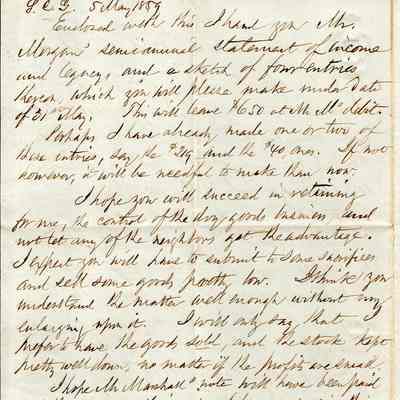 S. C. G. 5 May 1859
Enclosed with this I hand you Mr.
Morgans' semiannual statement of income
and legacy, and a sketch of four entries
thereon, which you will please make under date
of 21st May. This will leave $650 at Mr. Ms debit.
Perhaps I have already made one or two of
these entries, say the $219 and the $40 ones. If not
however, it will be needful to make them now.
I hope you will succeed in retaining
for me, the control of the dry goods business and
not let any of the neighbors get the advantage.
I expect you will have to submit to some sacrifices
and sell some goods pretty low. I think you
understand the matter well enough without my
enlarging upon it. I will only say that I
prefer to have the goods sold, and the stock kept
pretty well down, no matter if the profits are small.
I hope Mr Marshall's note will have been paid